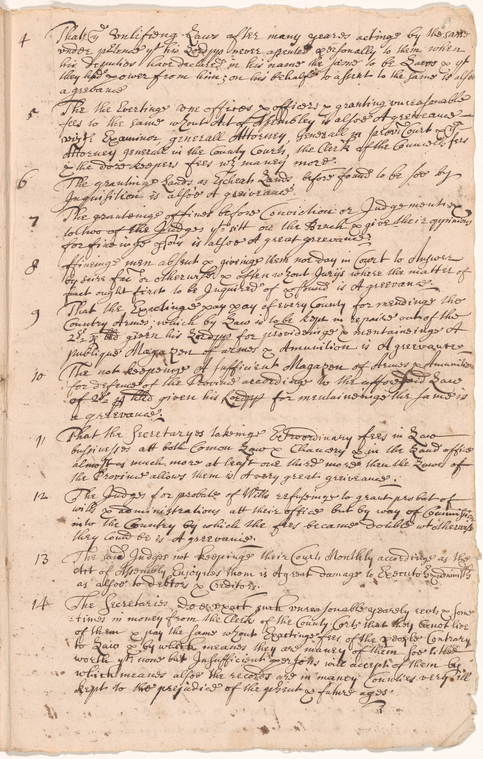 4 That ye Untileing Laws after many yeares actinge by the same
under pretence yt his Lordpp never assented personally to them when
his Deputies have declared in his name the same to be Lawes & yt
they had power from him, on his behalfe to assent to the same is alsoe
a greevance
5 The the Erectinge new offices & officers & granting unreasonable
fees to the same wthout Act of Assembly is alsoe A greevance
Examiner generall Attorney Generall in Provll Court & ye
Attorney generall in the County Courts, the Clerk of the Councell fees
& the dore keepers fees wth maney more
6 The granting Lands as Escheat Lands before found to be soe by
Inquisition is alsoe A greevance
7 The grantinge of fines before Conviction or Judgement &
to two of the Judges yt sitt on the Bench & give their opinions
for fineinge is alsoe A great greevance
8 fineinge men absent & giveinge them nor day in Court to Answer
by scire fac or otherwise & often wthout Jurys where the matter of
fact ought first to be Inquired of & found is A greevance
9 That the Exactinge pay of every County for mendinge the
Country Armes which by Law is to be kept in repaire out of the
given his Lordpp for provideinge & mentaineinge A
publique Magazen of armes & Amunition is A greevance
10 The not keepeinge A sufficient Magazen of Armes & Amunition
for defence of the Province according to the afforesaid Law
of given his Lordpp for mentaineinge the same is
a greevance
11 That the Secretaryes takeinge Extraordinary fees in Law
busnesses att both Comon Law & Chancery & in the Land office
almost as much more at least one third more then the Lawes of
the Province allows them is A very great greevance
12 The Judges for probate of Wills refuseinge to grant probat of
wills & administrations att their office but by way of Commission
into the Country by which the fees became double wt otherwise
they Could be is A greevance
13 The said Judges not keepinge their Courts Monthly accordinge as the
Act of Assembly Enjoynes them is A great damage to Executors
as alsoe to Debtor & Creditors
14 The Secretaries doe exact such unreasonable yearely rents & some
times in money from the Clerk of the County Corts that they Cannot live
of them & pay the same wthout Exactinge fees of the people Contrary
to Law & by which means they are maney of them soe little
worth yt none but Insufficient persons will accept of them by
which means alsoe the records are in maney Counties very ill
kept to the prejudice of the present & future ages